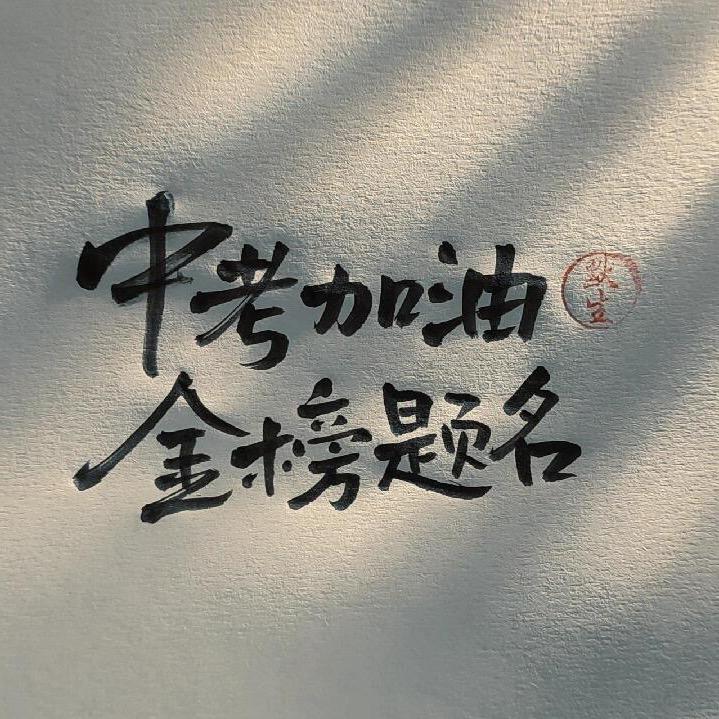 中考加油
金榜题名